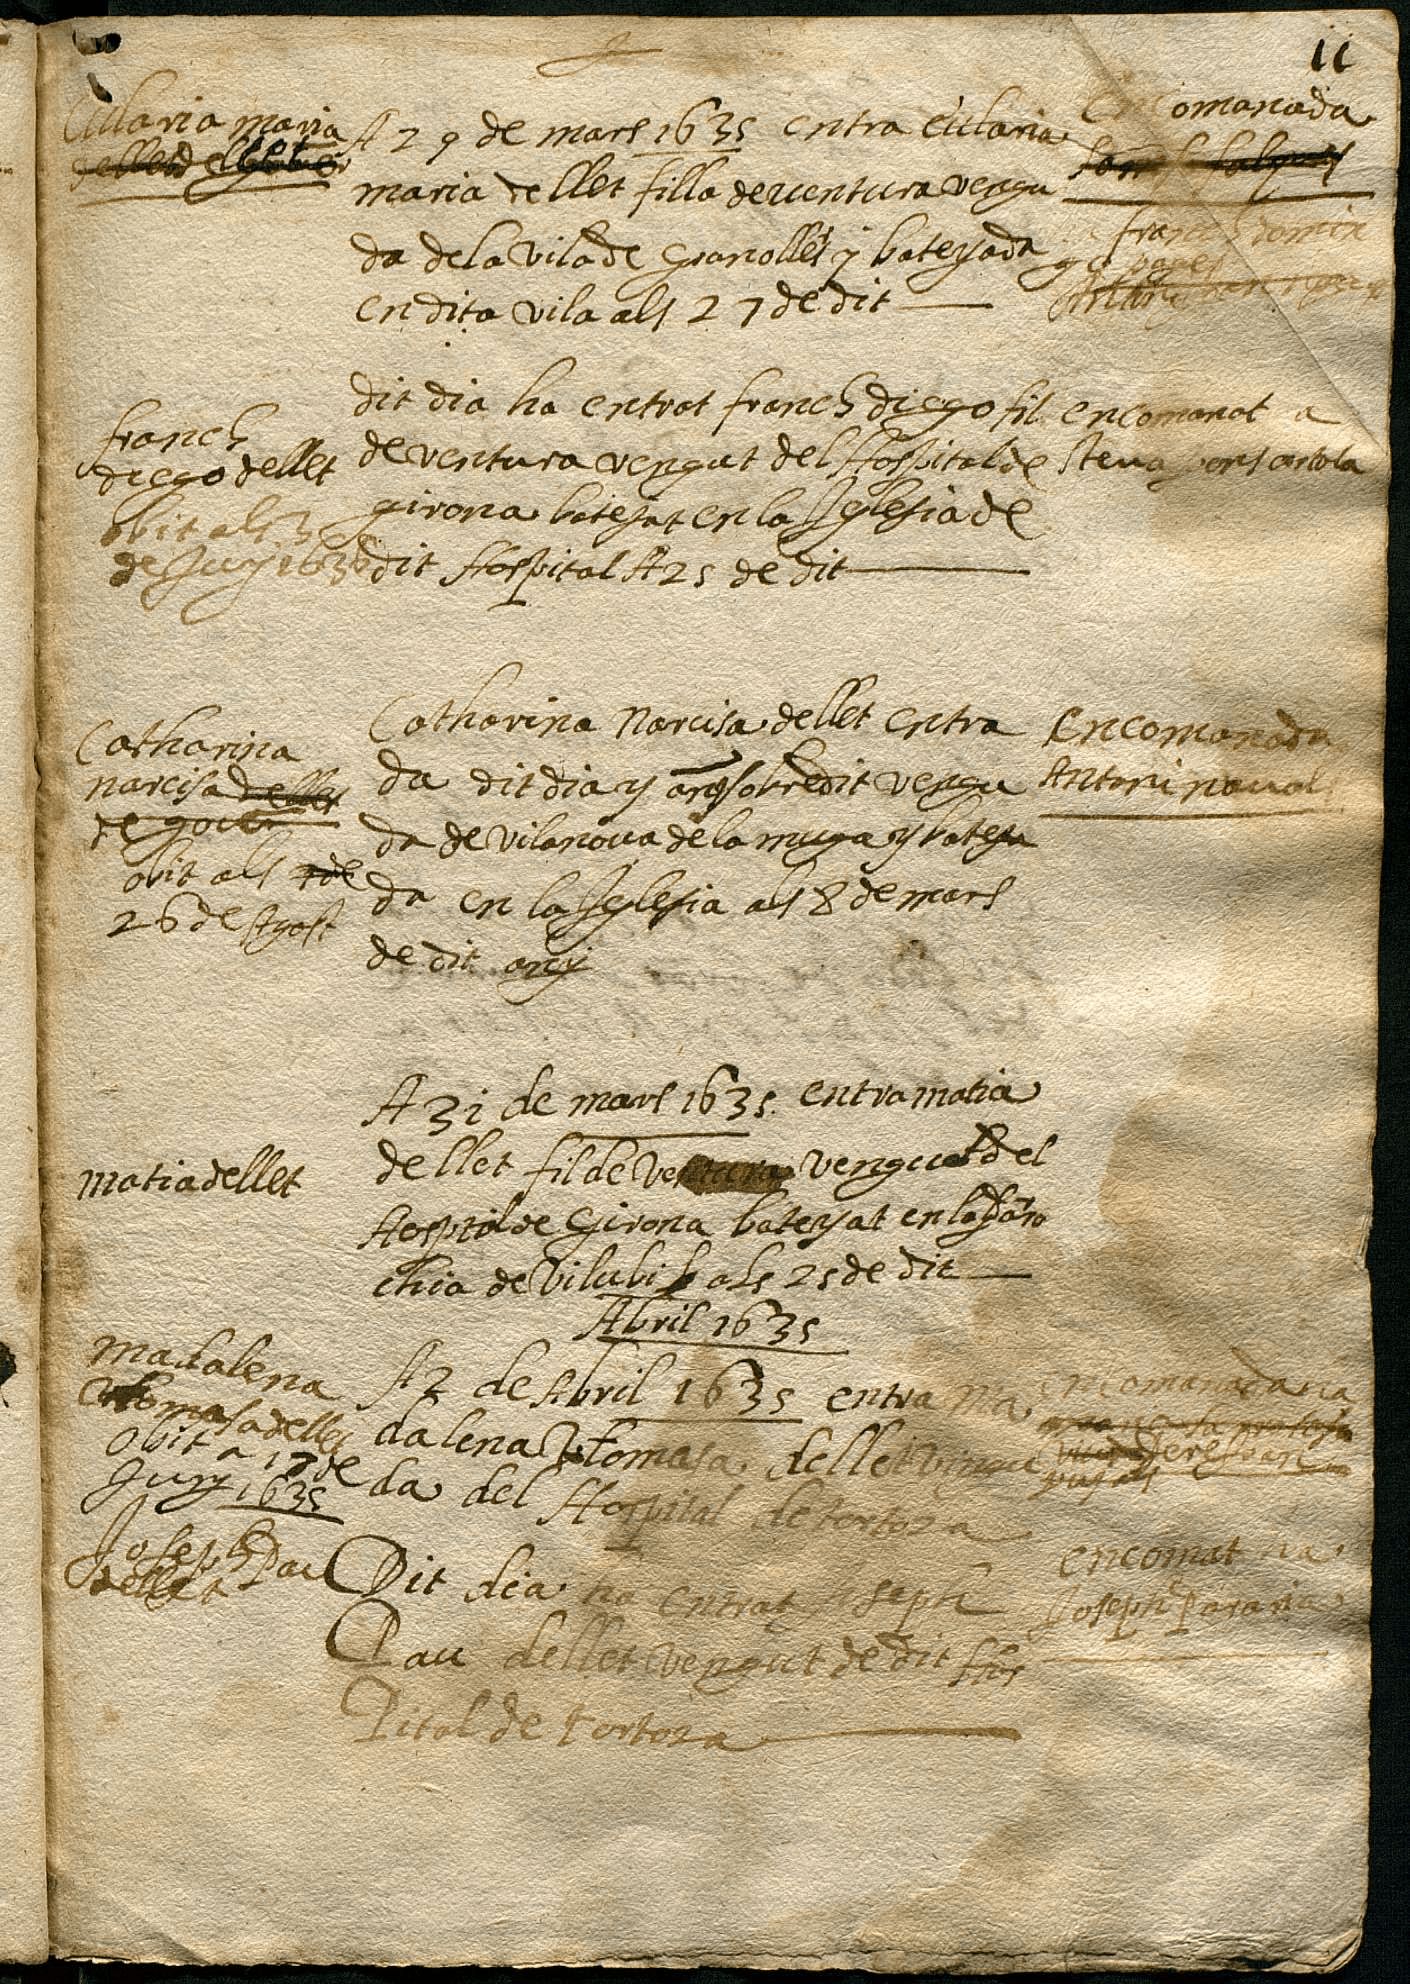 11
Eularia maria
A 29 de mars 1635 entra eularia
maria dellet filla de ventura vengu
da de la vila de Granollers y batejada
en dita vila als 27 de dit
encomanada
franch
pages
franch
diego dellet
obit als 3
de Juny 1636
dit dia ha entrat franch diego fil
de ventura vengut del Hospital de
girona batejat en la Iglesia de
dit Hospital A 25 de dit
encomanat a
Steva
Catharina
narcisa dellet
obit als
26 de Agost
Catharina Narcisa dellet entra
da dit dia y any sobredit vengu
da de vilanova de la muga y bateja
da en la Iglesia als 8 de mars
de dit any
Encomanada
Antoni
matia dellet
A 31 de mars 1635 entra matia
dellet fil de ventura vengut del
Hospital de Girona batejat en la paro
chia de vilubi als 25 de dit
Abril 1635
madalena
tomasa dellet
obit a 17 de
Juny 1635
A 2 de Abril 1635 entra ma
dalena tomasa dellet vingu
da del Hospital de tortoza
encomanada
Joseph Pau
dellet
Dit dia ha entrat Joseph
Pau dellet vengut de dit Hos
Pital de tortoza
encomat
Joseph